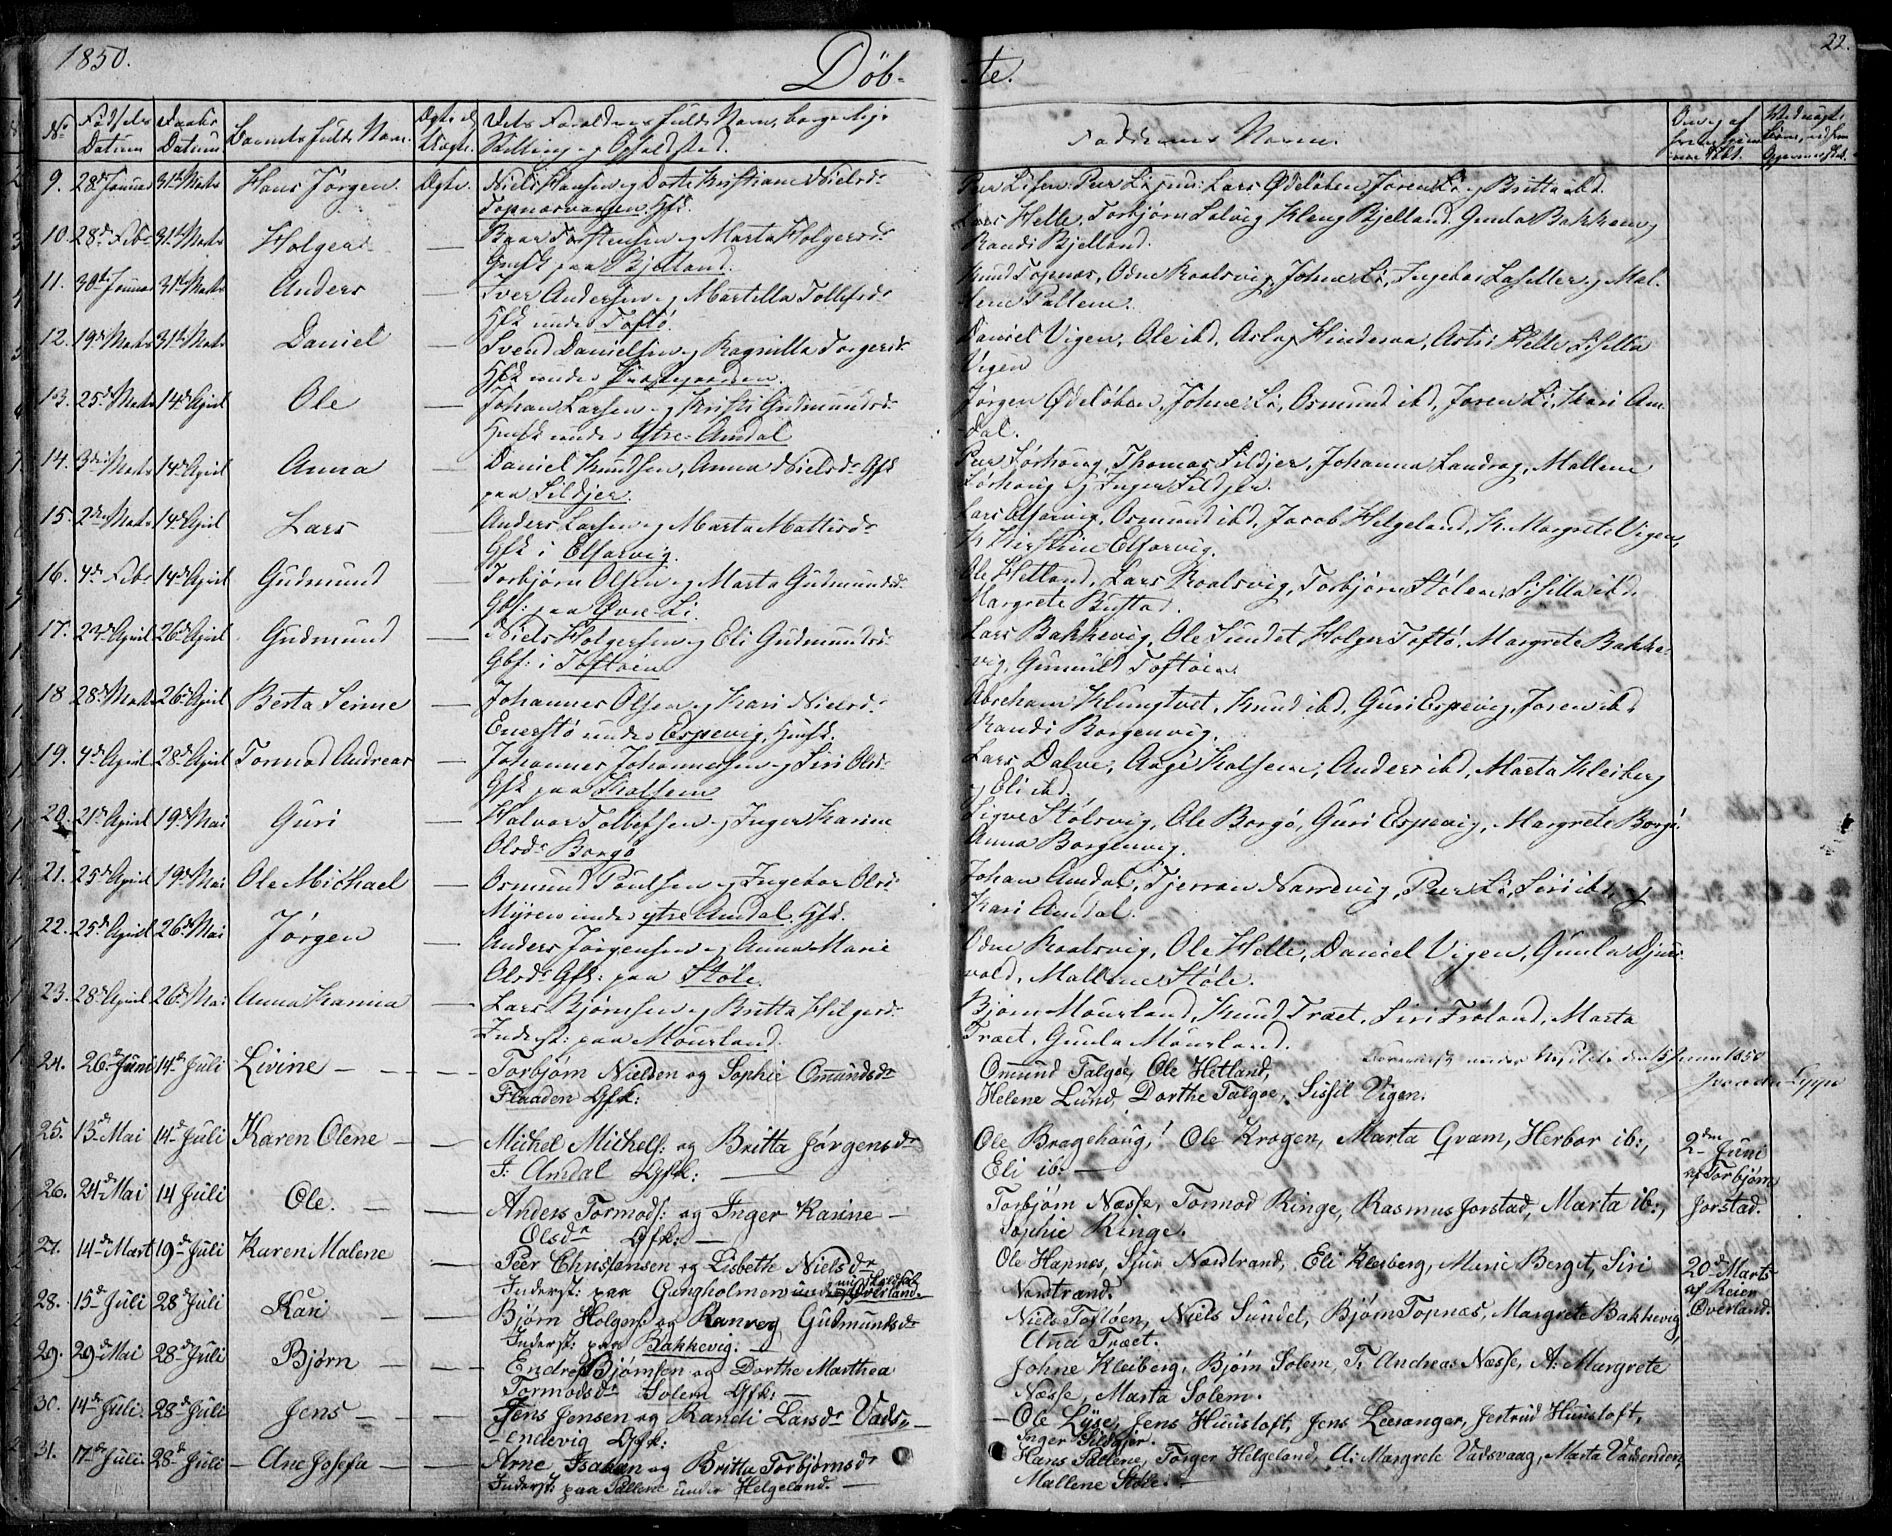 1850.
Döb-
te.
22.
No
Fødsels Datum
Daabs Datum
Barnets fulde Navn
Ægte el. Uægte.
Dets Forældres fulde Navn, borgerlige
Stilling og Opholdsted.
Faddernes Navne.
9. 28de Januar 31te Marts Hans Jørgen. Ægte. Niels Hansen og Dorte Kristiane Nielsdr
Topnæsvaagen, Hfk.
10. 28de Febr 31te Marts Holger — Baar Torstensen og Marta Holgersdr
Gmfk paa Bjelland.
Lars Helle, Torbjørn Solvig, Kleng Bjelland, Gunla Bakken og
Randi Bjelland.
11. 30te Januar 31te Marts Anders — Iver Andersen og Martilla Tollefsdr
Hfk under Toftø.
Knud Topnæs, Odne Roalsvig, Johne Li, Ingebor
12. 19de Marts 31te Marts Daniel — Svend Danielsen og Ragnilla Torgersdr
Hfk under Præstegaarden.
Daniel Vigen, Ole ibd, Aslag Hinderaa, Astri Helle, Lisilla
Vigen
13. 25de Marts 14de April Ole — Johan Larsen og Kristi Gudmundsdr
Hmfk under Ytre-Amdal
Jørgen Ødeløben, Johne Li, Osmund ibd, Joren Li, Kari Am-
dal.
14. 3die Marts 14de April Anna — Daniel Knudsen, Anna Nielsdr Gfk
paa Sildjer.
Peer Lørhoug, Thomas Sildjer, Johanna Landrag, Mallene
Lørhoug og Inger Sildjer.
15. 2den Marts 14de April Lars — Anders Larsen og Marta Mattisdr
Gfk i Elfarvig.
Lars Elfarvig, Osmund ibd, Jacob Helgeland, K. Margrete Vigen,
K Kirstine Elfarvig.
16. 4de Febr 14de April Gudmund — Torbjørn Olsen og Marta Gudmundsdr
Gbf: paa Øvre-Li.
Ole Hetland, Lars Roalsvig, Torbjørn Stølen, Lisilla ibd.
Margrete Bustad.
17. 23de April 26de April Gudmund — Niels Holgersen og Eli Gudmundsdr
Gbf: i Toftøen
Lars Bakkevig, Ole Sundet, Holger Toftø, Margrete Bakke-
vig, Gunnild Toftøen.
18 28de Marts 26de April Berta Serine — Johannes Olsen og Kari Nielsdr
Enerstø under Espevig, Hmfk.
Abraham Klungtvet, Knud ibd, Guri Espevig, Joren ibd
Randi Borgenvig.
19. 4de April 28de April Tormod Andreas — Johannes Johannessen og Siri Olsdr
Gfk paa Kolsem
Lars Dalve, Aage Kolsem, Anders ibd, Marta Kleiberg
og Eli ibd.
20. 21de April 19de Mai Guri — Halvor Tollefsen og Inger Karine
Olsdr Borgø
Sigve Stølsvig, Ole Borgø, Guri Espevig, Margrete Borgø
Anna Borgenvig.
21. 25de April 19de Mai Ole Michael — Osmund Poulsen og Ingebor Olsdr
Myren under ytre Amdal, Hfk.
Johan Amdal, Tjerran Narrevig, Peer Li, Siri ibd, og
Kari Amdal.
22. 25de April 26de Mai Jørgen — Anders Jørgensen og Anna Marie
Olsdr Gfk: paa Støle.
Odne Roalsvig, Ole Helle, Daniel Vigen, Gunla Djuri-
vold, Mallene Støle.
23. 28de April 26de Mai Anna Karina — Lars Bjørnsen og Britta Hilgersdr
Inderst: paa Mourland.
Bjørn Mourland, Knud Træet, Siri Frøland, Marta
Træet, Gunla Mourland.
24. 26de Juni 14de Juli Livine — Torbjørn Nielsen og Sophie Omundsdr
Flaaden Gfk:
Omund Talgøe, Ole Hetland,
Helene Lund, Dorthe Talgøe, Sissil Vigen.
25. 13de Mai 14de Juli Karen Olene — Michel Michels: og Britta Jørgensdr
I: Amdal Gfk:
Ole Bragehaug, Ole Krogen, Marta Gram, Herbor ib:,
Eli ib: —
2den Juni
af Torbjørn
Jorstad.
26. 24de Mai 14 Juli Ole. — Anders Tormods: og Inger Karine —
Olsdr Gfk: —
Torbjørn Næsse, Tormod Ringe, Rasmus Jorstad, Marta ib:,
Sophie Ringe.
27. 14de Mart 19de Juli Karen Malene — Peer Christensen og Lisbeth Nielsdr
Inderst: paa Gungholmen under Øverland.
Ole Hapnes, Sjur Nordtrand, Eli Kleiberg, Marie Berget, Siri
Nordtrand.
20de Marts
af Reier
Øverland.
28. 15de Juli 28 Juli Kari — Bjørn Holgers og Ranveg Gudmundsdr
Inderst: paa Bakkevig. —
Niels Toftøen, Niels Sundet, Bjørn Topnæs, Margrete Bakkevig,
Anna Træet.
29. 29de Mai 28de Juli Bjørn — Endre Bjørnsen og Dorthe Marthea
Tormodsdr Solem Gfk: —
Johne Kleiberg, Bjørn Solem, T. Andreas Næsse, A: Margrete
Næsse, Marta Solem.
30. 14de Juli 28de Juli Jens — Jens Jensen og Randi Larsdr Vads-
endevig Gfk:
Ole Lyse, Jens Huustoft, Jens Leesanger, Jertrud Huustoft,
Inger Sildjer.
31. 17de Juli 28de Juli Ane Josefa — Arne Isaksen og Britta Torbjørnsdr
Inderst: paa Pallene under Helgeland. —
Hans Pallene, Torger Helgeland, A: Margrete Vadsvaag, Marta Vadsenden,
Mallene Støle.